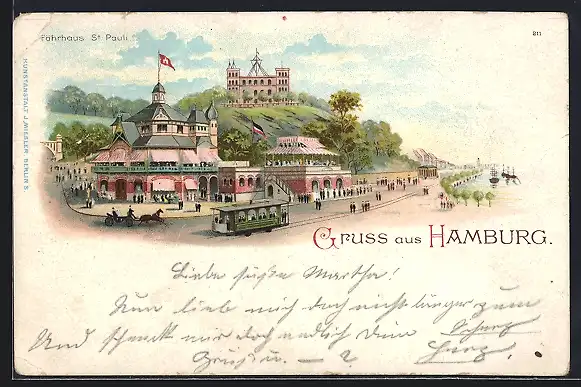 Fährhaus St. Pauli
811
KUNSTANSTALT J. MIESLER, BERLIN S.
Gruss aus Hamburg.
Liebe süße Martha!
Nun lieb mich doch nicht länger zum Scherz
Und schenk mir doch endlich Dein Herz
Gruß u. — ?